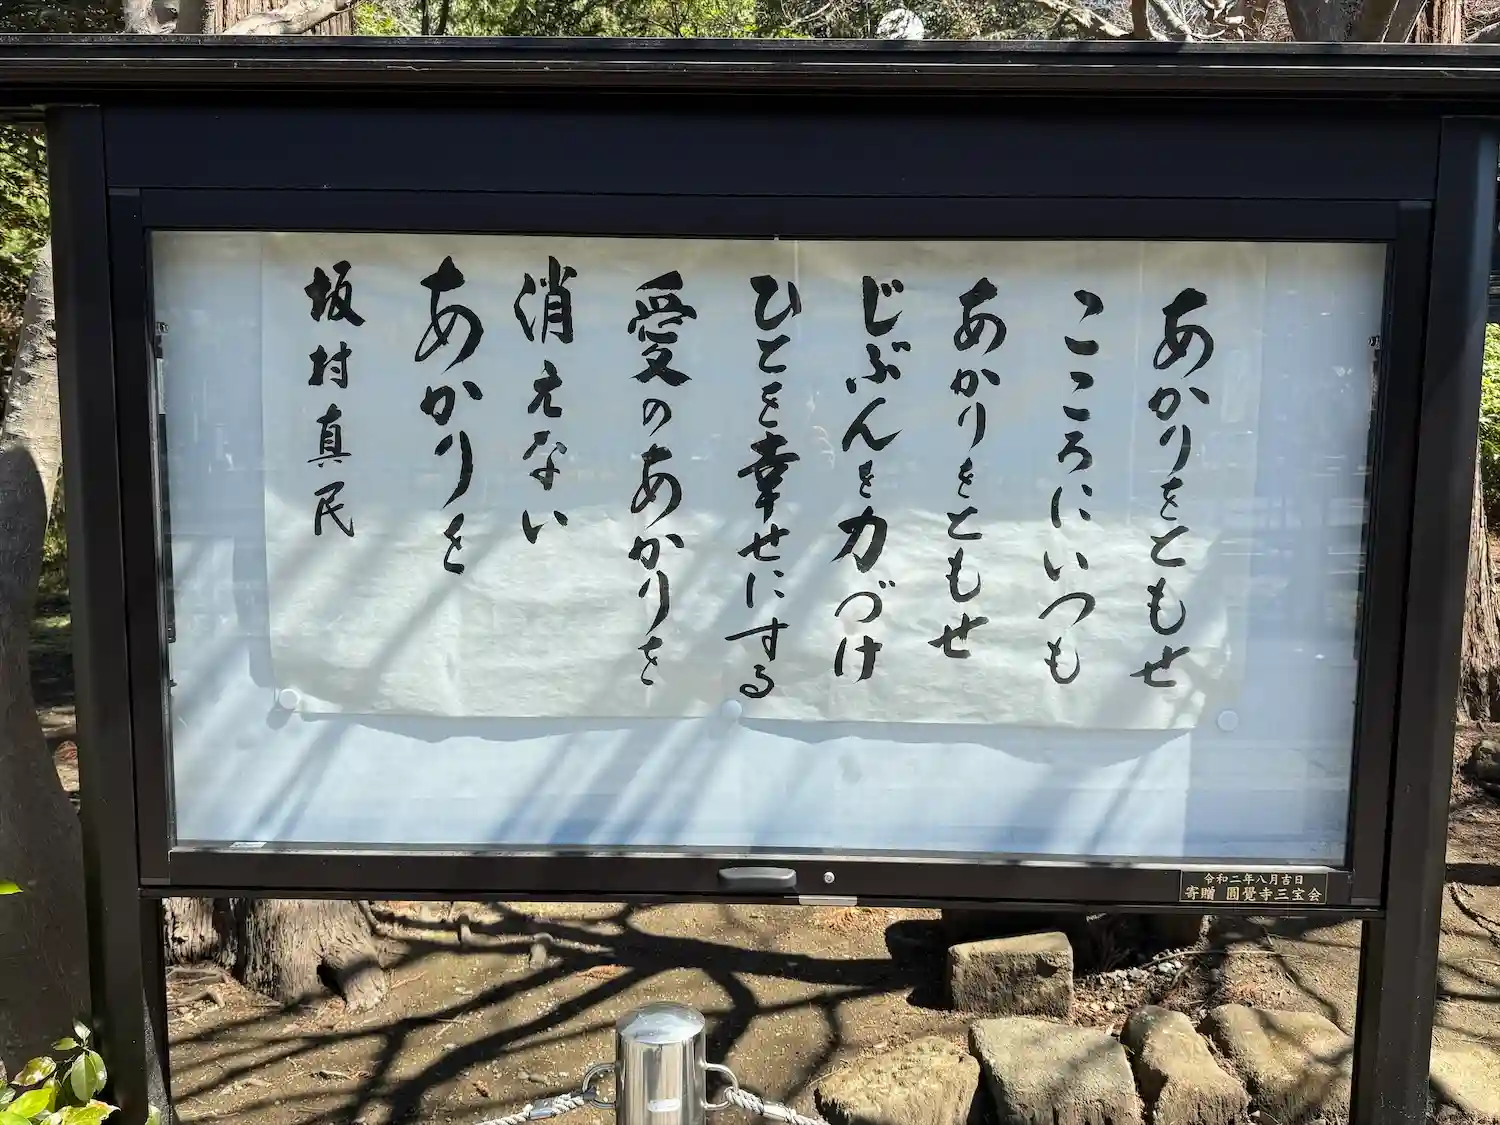 あかりをともせ
こころにいつも
あかりをともせ
じぶんを力づけ
ひとを幸せにする
愛のあかりを
消えない
あかりを
坂村真民
令和二年八月吉日
寄贈 圓覺寺三宝会